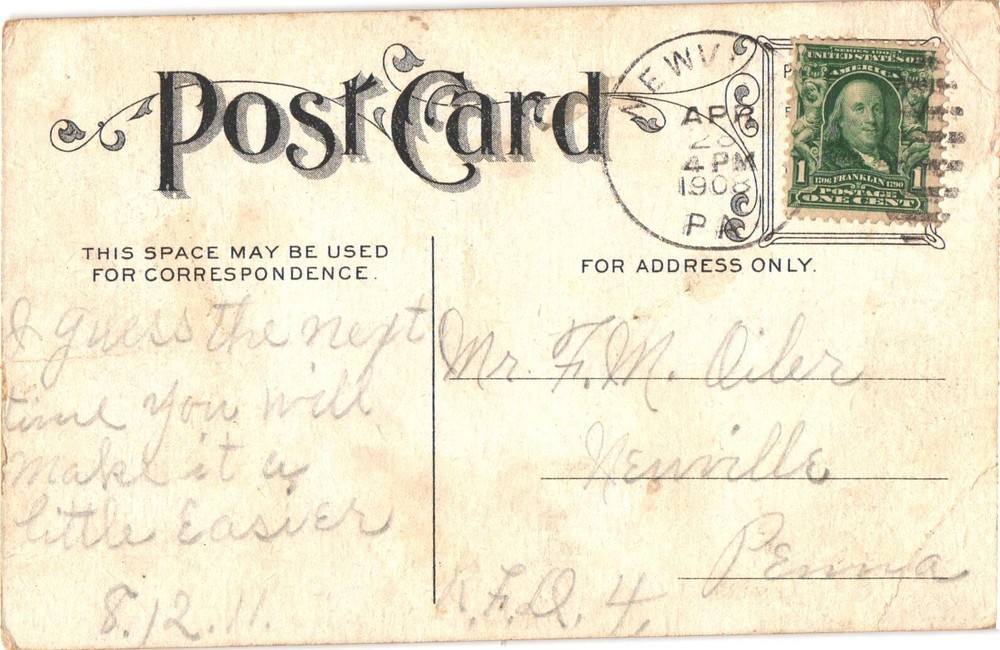 Post Card
NEWV
APR
4 PM
1908
PA
SERIES 1902
UNITED STATES OF
AMERICA
1 1
1706 FRANKLIN 1790
POSTAGE
ONE CENT
THIS SPACE MAY BE USED
FOR CORRESPONDENCE.
FOR ADDRESS ONLY.
I guess the next
time you will
make it a
little easier
8.12.11.
Mr. F. M. Oiler
Newville
Penna
R.F.D. 4.